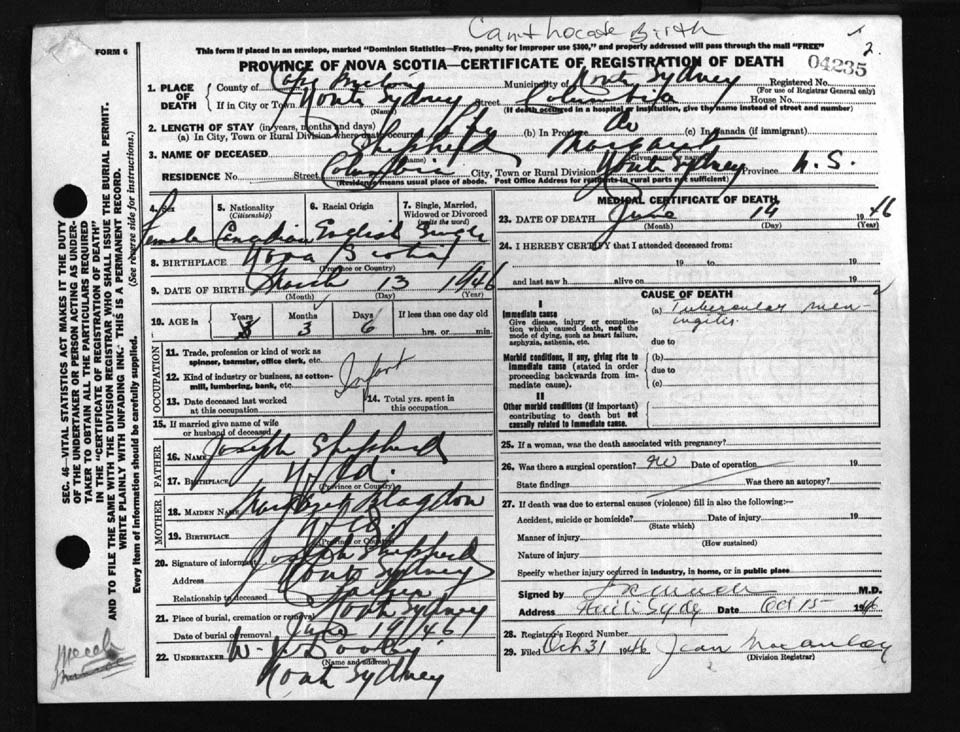 Can't locate Birth
2.
FORM 6
This form if placed in an envelope, marked "Dominion Statistics—Free, penalty for improper use $300," and properly addressed will pass through the mail "FREE"
PROVINCE OF NOVA SCOTIA—CERTIFICATE OF REGISTRATION OF DEATH
04235
1. PLACE OF DEATH
County of Cape Breton Municipality of North Sydney Registered No.
(For use of Registrar General only)
If in City or Town North Sydney Street House No.
(Name) (If death occurred in a hospital or institution, give its name instead of street and number)
2. LENGTH OF STAY (in years, months and days)
(a) In City, Town or Rural Division where death occurred (b) In Province (c) In Canada (if immigrant)
3. NAME OF DECEASED Shepherd Margaret
(Given name or names)
RESIDENCE No. Street City, Town or Rural Division North Sydney Province N.S.
(Residence means usual place of abode. Post Office Address for residents in rural parts not sufficient)
4. Sex Female
5. Nationality (Citizenship) Canadian
6. Racial Origin English
7. Single, Married, Widowed or Divorced (write the word) Single
8. BIRTHPLACE Nova Scotia
(Province or Country)
9. DATE OF BIRTH March 13 1946
(Month) (Day) (Year)
10. AGE in Years Months 3 Days 6 If less than one day old hrs. or min.
OCCUPATION
11. Trade, profession or kind of work as spinner, teamster, office clerk, etc.
12. Kind of industry or business, as cotton-mill, lumbering, bank, etc. Infant
13. Date deceased last worked at this occupation
14. Total yrs. spent in this occupation
15. If married give name of wife or husband of deceased
FATHER
16. Name Joseph Shepherd
17. Birthplace Nfld.
(Province or Country)
MOTHER
18. Maiden Name Margaret Blagdon
19. Birthplace Nfld.
(Province or Country)
20. Signature of informant Joseph Shepherd
Address North Sydney
Relationship to deceased Father
21. Place of burial, cremation or removal North Sydney
Date of burial or removal June 19/46
22. UNDERTAKER W. J. Dooley
(Name and address)
North Sydney
MEDICAL CERTIFICATE OF DEATH
23. DATE OF DEATH June 19 1946
(Month) (Day) (Year)
24. I HEREBY CERTIFY that I attended deceased from:
19 to 19
and last saw h alive on 19
CAUSE OF DEATH
I
Immediate cause
Give disease, injury or complication which caused death, not the mode of dying, such as heart failure, asphyxia, asthenia, etc.
(a) Tubercular meningitis
due to
Morbid conditions, if any, giving rise to immediate cause (stated in order proceeding backwards from immediate cause).
(b)
due to
(c)
II
Other morbid conditions (if important) contributing to death but not causally related to immediate cause.
25. If a woman, was the death associated with pregnancy?
26. Was there a surgical operation? no Date of operation 19
State findings Was there an autopsy?
27. If death was due to external causes (violence) fill in also the following:—
Accident, suicide or homicide? Date of injury 19
(State which)
Manner of injury
(How sustained)
Nature of injury
Specify whether injury occurred in industry, in home, or in public place
Signed by M.D.
Address Date Oct 15 1946
28. Registrar's Record Number
29. Filed Oct 31 1946 Jean Macaulay
(Division Registrar)
SEC. 46—VITAL STATISTICS ACT MAKES IT THE DUTY OF THE UNDERTAKER OR PERSON ACTING AS UNDERTAKER TO OBTAIN ALL THE PARTICULARS REQUIRED IN THE "CERTIFICATE OF REGISTRATION OF DEATH" AND TO FILE THE SAME WITH THE DIVISION REGISTRAR WHO SHALL ISSUE THE BURIAL PERMIT.
WRITE PLAINLY WITH UNFADING INK. THIS IS A PERMANENT RECORD.
Every item of information should be carefully supplied. (See reverse side for instructions.)